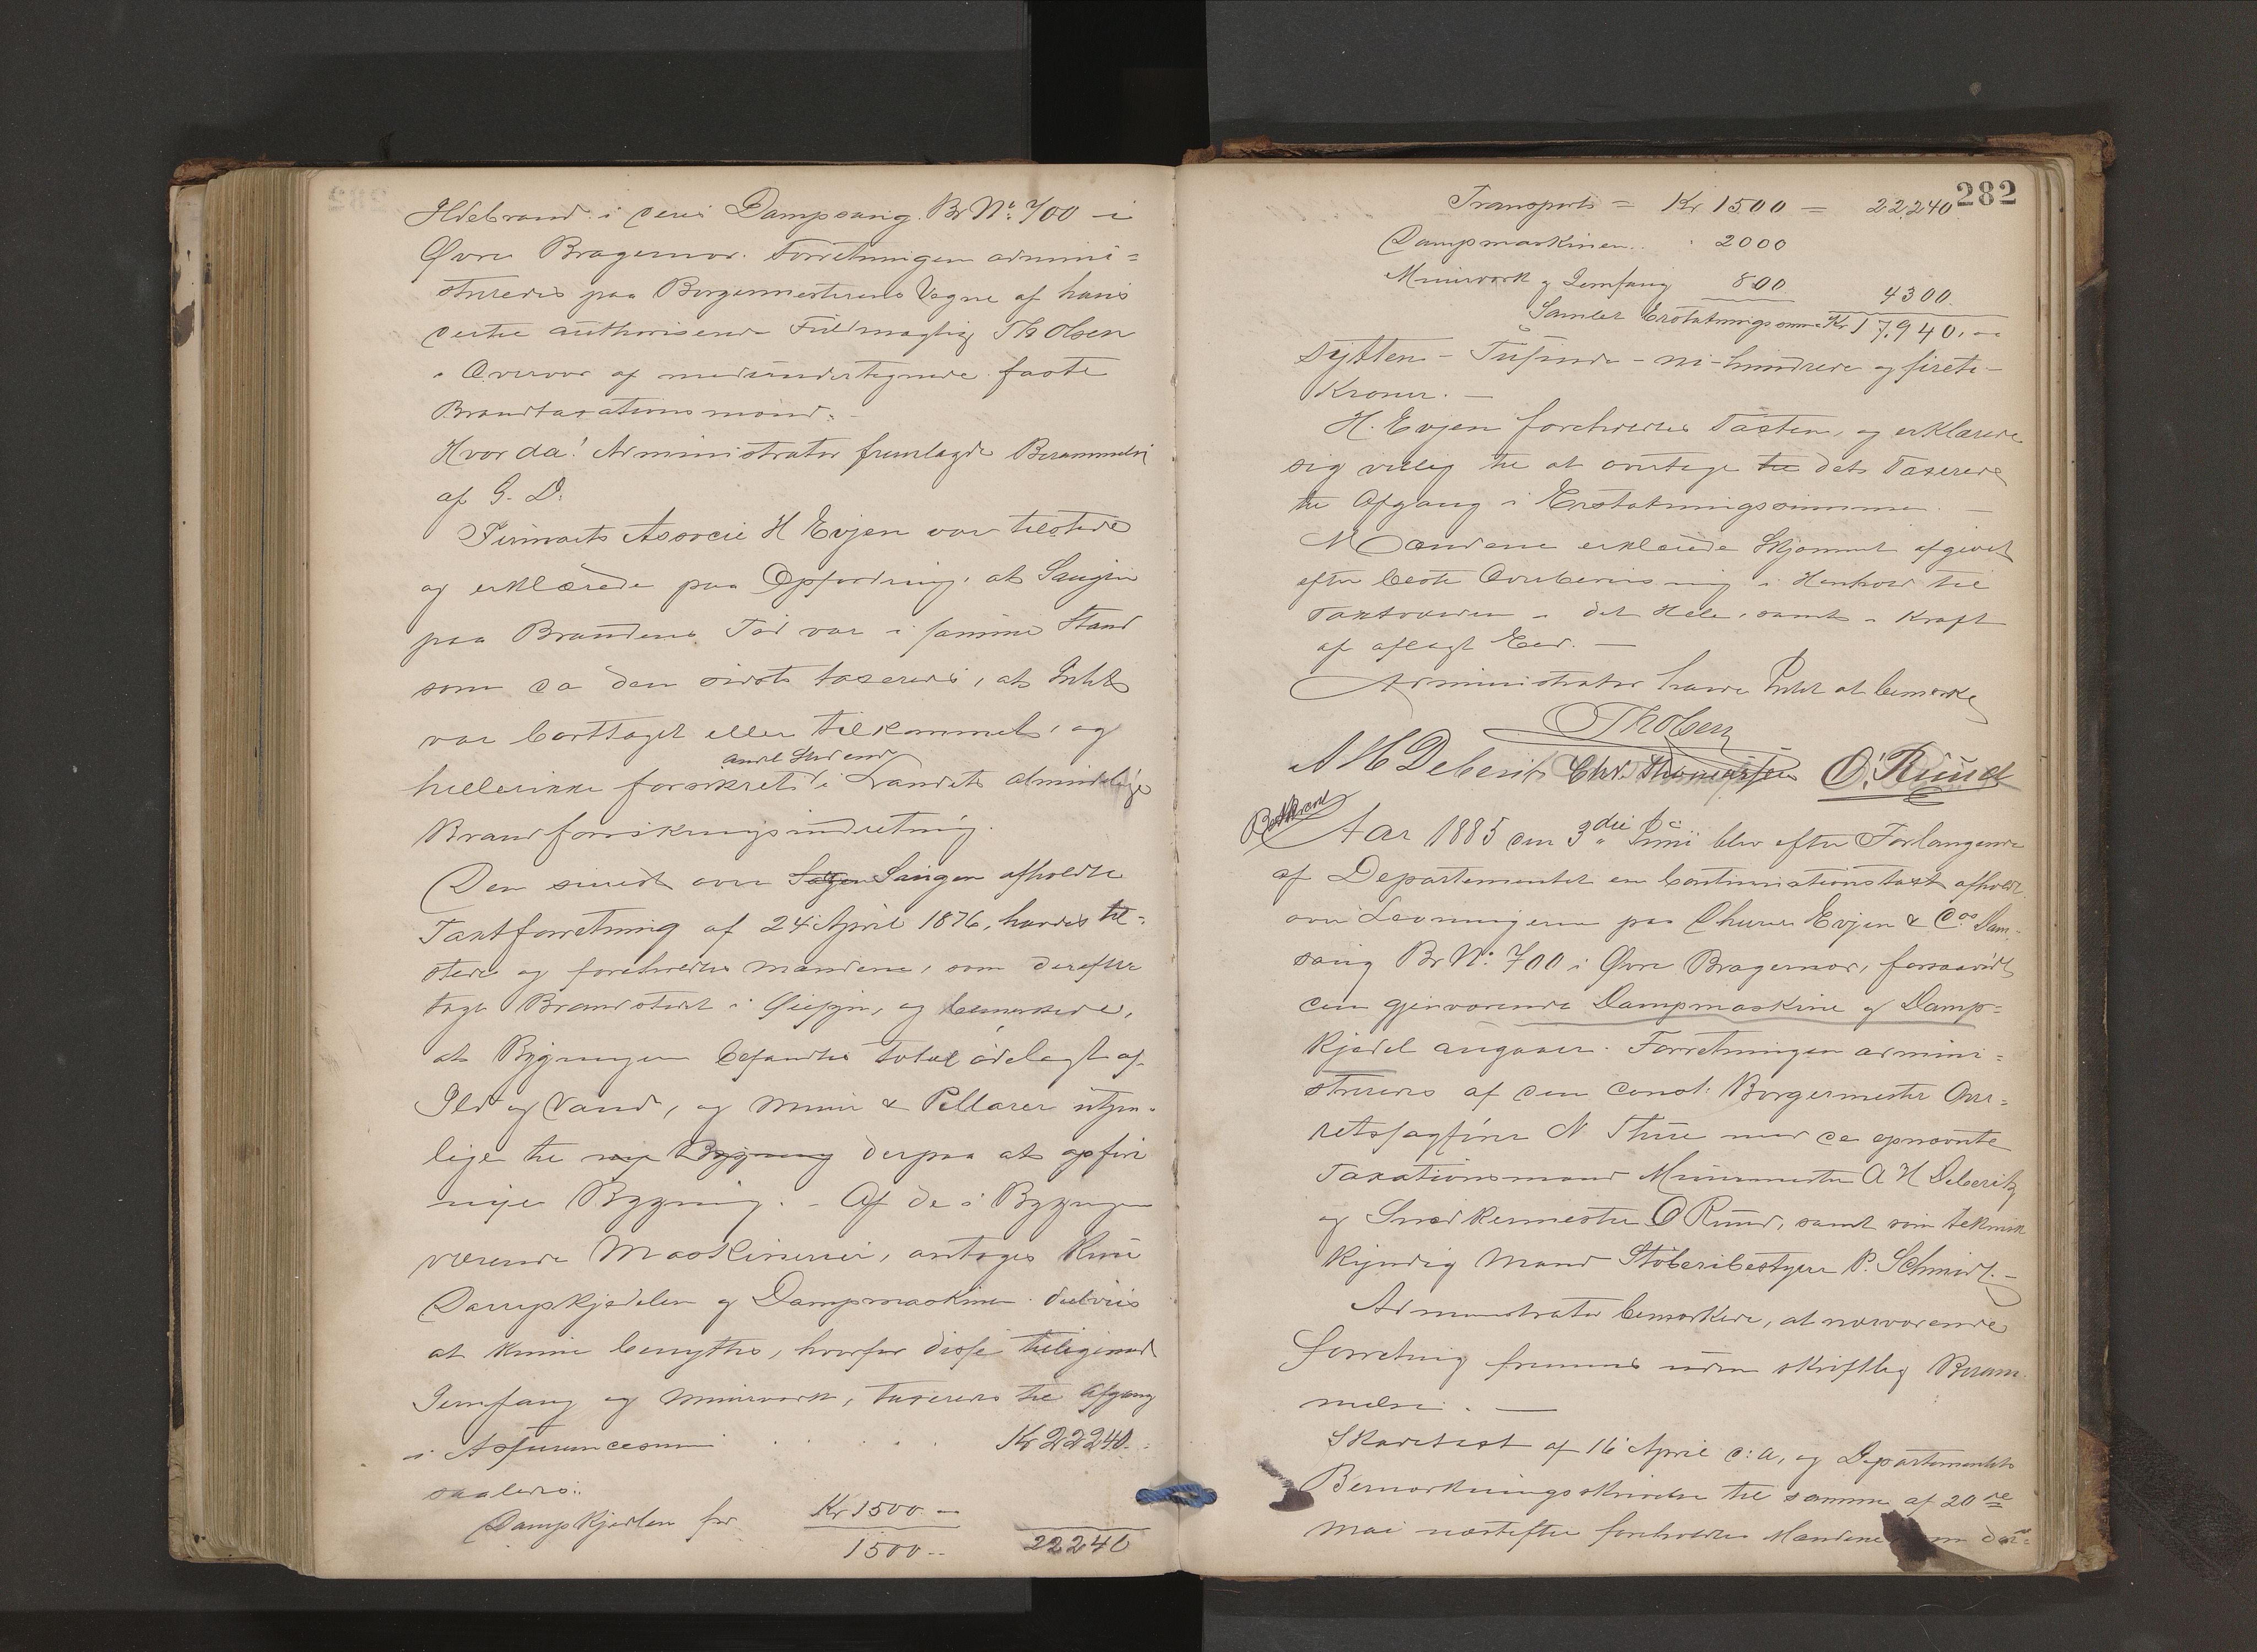 Ildebrand i deres Dampsaug Br No: 700 i
Øvre Bragernæs. Forretningen admini=
streredes paa Borgermesterens Vegne af hans
dertil authoriserede Fuldmægtig Th Olsen
i Overvær af medundertegnede faste
Brandtaxationsmænd. –
Hvor da! Administrator fremlagde Berammelse
af G. D.
Firmaets Associe H Evjen var tilstede
og erklærede paa Opfordring, at Saugen
paa Brandens Tid var i samme Stand
som da den sidst taxeredes, at Intet
var borttaget eller tilkommet, og
andet Sted end
hellerikke forsikret i Landets almindelige
Brandforsikringsindretning.
Den senest over Sagen Saugen afholdte
Taxtforretning af 24 April 1876, havdes til=
stede og foreholdtes Mændene, som derefter
tog Brandstedet i Øiesyn, og bemærkede,
at Bygningen befandtes total ødelagt af
Ild og Vand, og Mure & Pillarer utjen=
lige til ny Bygning derpaa at opføre
nye Bygning. – Af de i Bygningen
værende Maskinerier, antages kun
Dampkjedelen og Dampmaskinen delvis
at kunne benyttes, hvorfor disse tilligemed
Jernfang og Murværk, taxeres til Afgang
i Assurancesum . . . . Kr 22240.
saaledes:
Dampkjedlen for Kr 1500 –
1500 – 22240
282
Transport = Kr 1500 = 22240
Dampmaskinen . . : 2000
Murværk og Jernfang 800 4300.
Samlet Erstatningssum Kr 17,940. –
sytten – Tusinde – ni – hundrede og fireti –
Kroner. –
H. Evjen foreholdtes Taxten, og erklærede
sig villig til at overtage til det Taxerede
til Afgang i Erstatningssummen. –
Mændene erklærede Skjønnet afgivet
efter bedste Overbevisning i Henhold til
Taxtværdien i det Hele, samt i Kraft
af aflagt Eed. –
Administrator havde Intet at bemærke
Th Olsen
A H Deberitz Chr. Thomassen O. Ruud
Beskreve
Aar 1885 den 3die Juni blev efter Forlangende
af Departementet en Continuationstaxt afholdt
over Levningerne paa Thurs Evjen & Cos Dam-
saug Br No: 700 i Øvre Bragernæs, forsaavidt
den gjenværende Dampmaskine og Damp=
kjedel angaaer. Forretningen admini=
streredes af den const. Borgermester Over=
retssagfører N Thue med de opnævnte
Taxationsmænd Murmester A H Deberitz
og Snedkermester O Ruud, samt som teknisk
kyndig Mand Støberibestyrer P. Schmidt. –
Administrator bemærkede, at nærværende
Forretning fremmes uden skriftlig Beram
melse. –
Skadetaxt af 16 April d: A, og Departementets
Bemærkningsskrivelse til samme af 20de
Mai næstefter foreholdtes Mændene